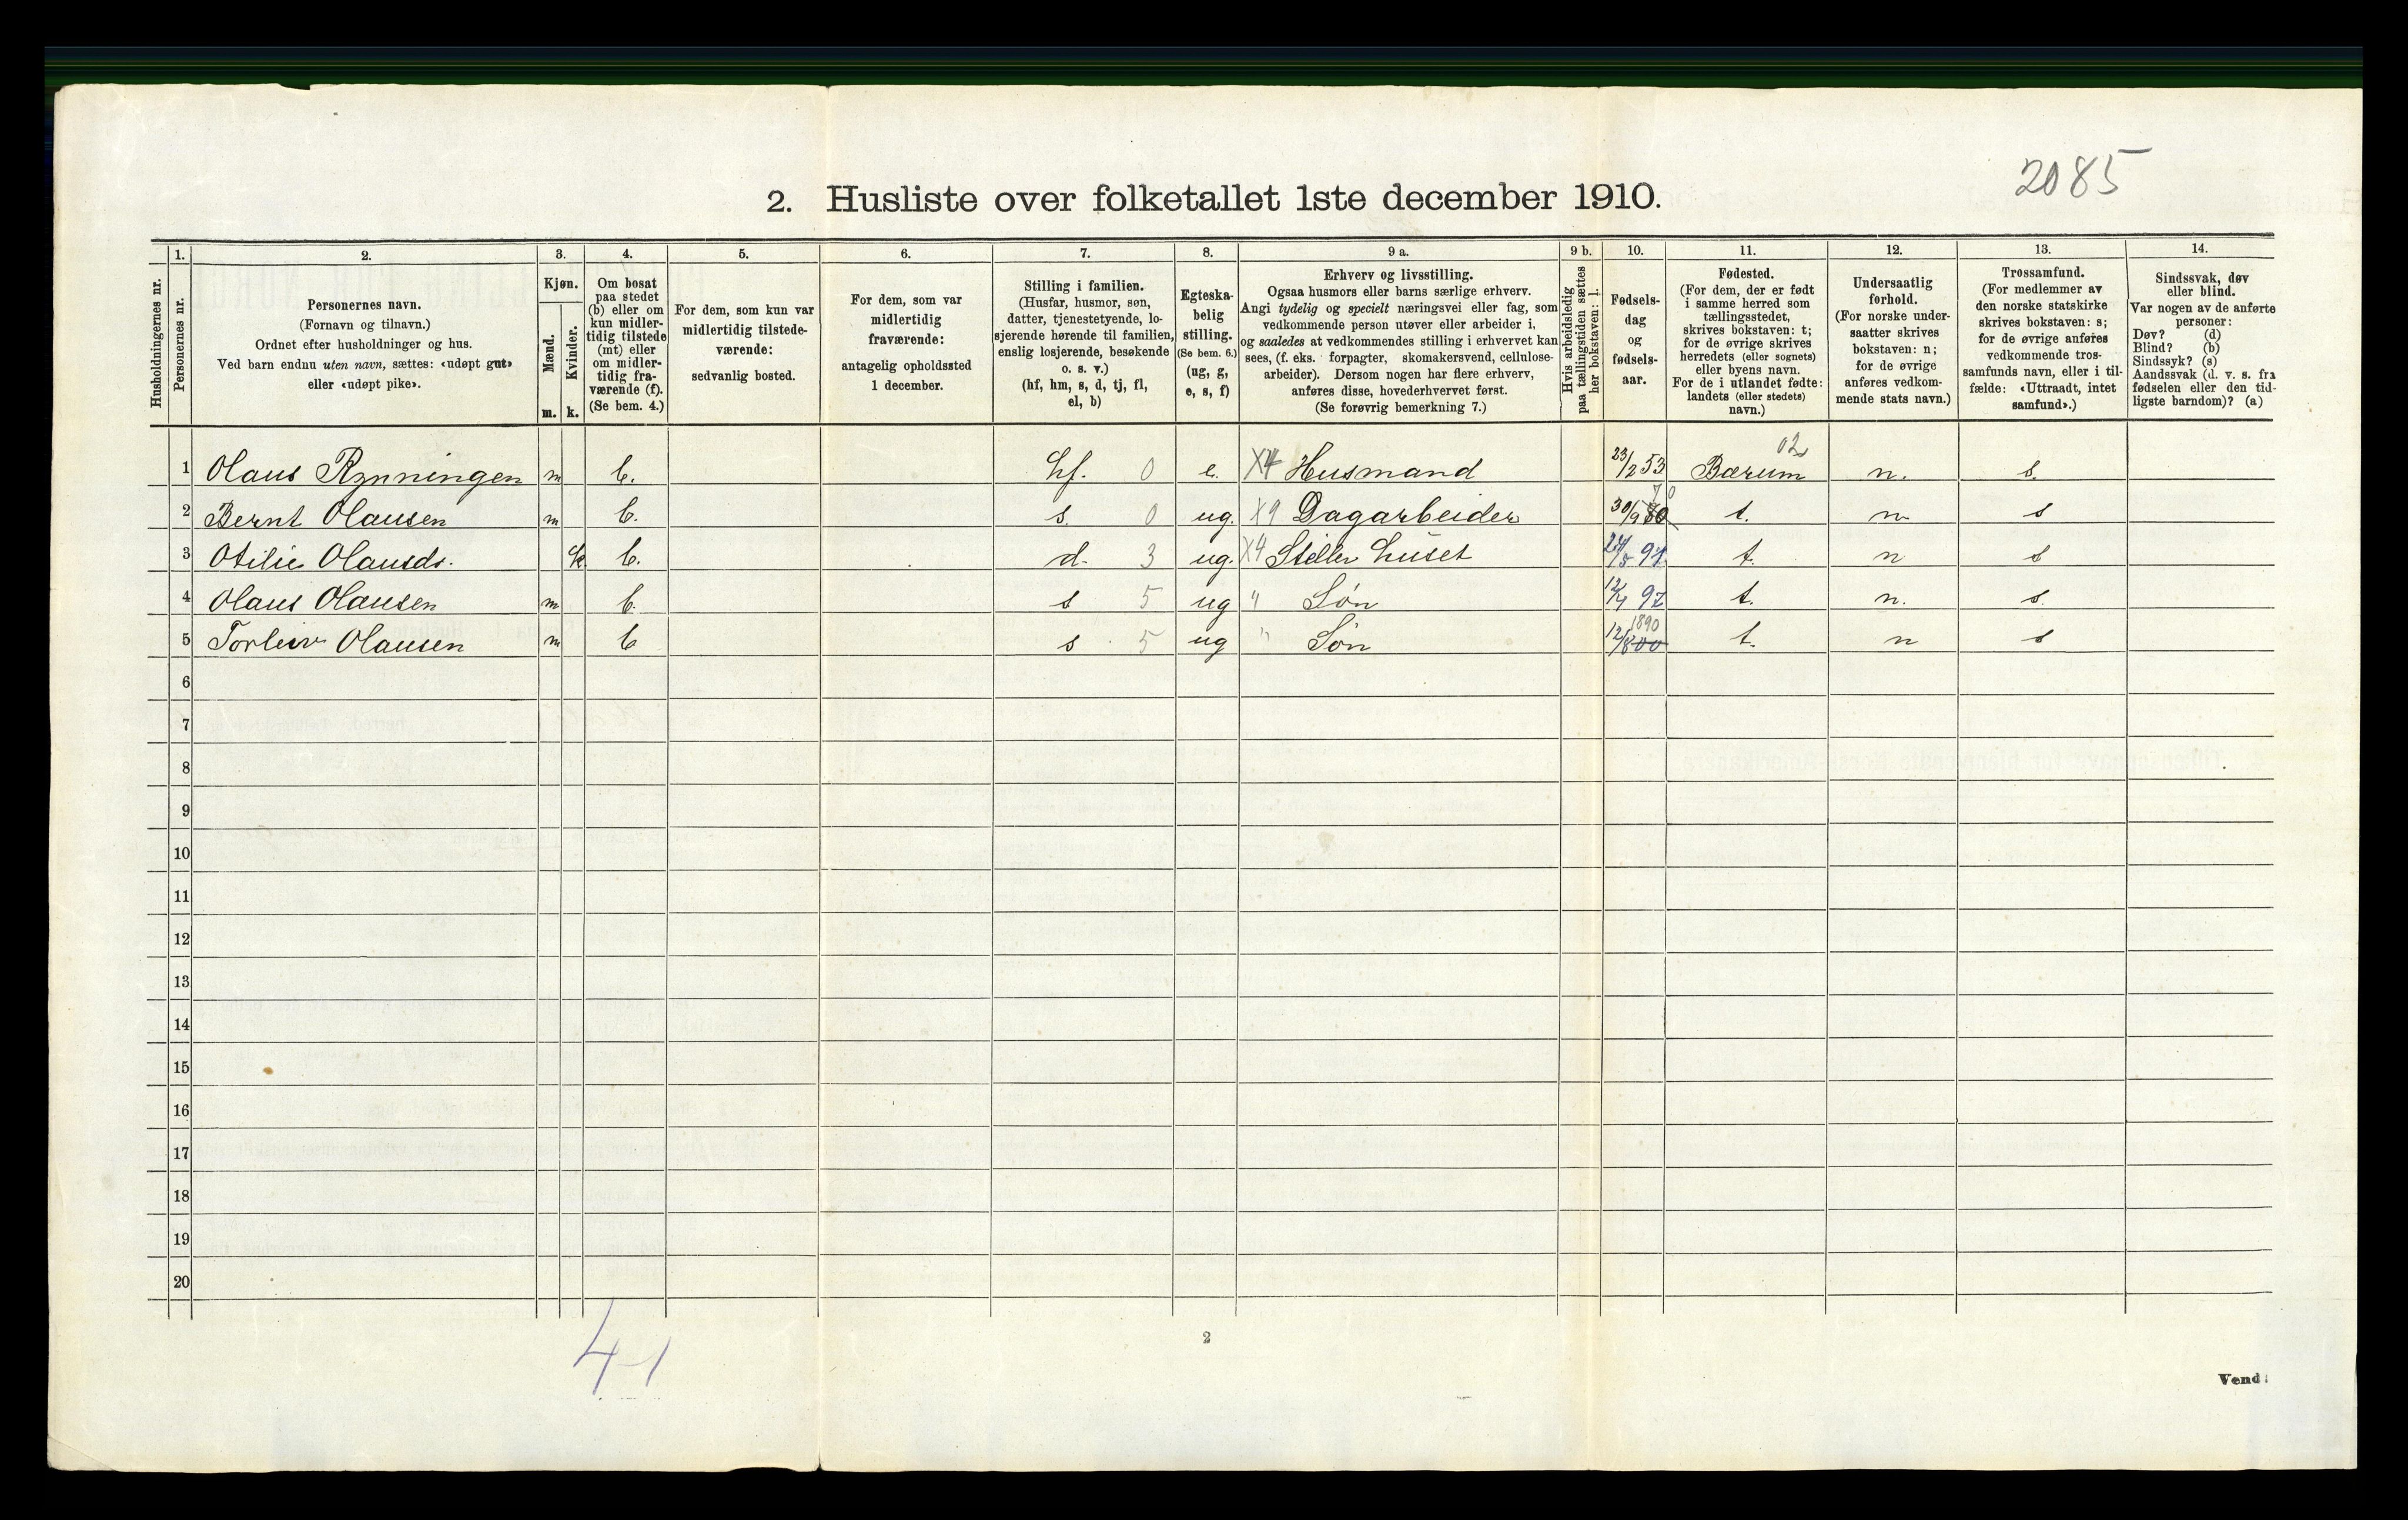 2085
2. Husliste over folketallet 1ste december 1910.
Husholdningernes nr.
1.
Personernes nr.
2.
Personernes navn.
(Fornavn og tilnavn.)
Ordnet efter husholdninger og hus.
Ved barn endnu uten navn, sættes: «udøpt gut»
eller «udøpt pike».
3.
Kjøn.
Mænd.
Kvinder.
m. k.
4.
Om bosat
paa stedet
(b) eller om
kun midler-
tidig tilstede
(mt) eller
om midler-
tidig fra-
værende (f).
(Se bem. 4.)
5.
For dem, som kun var
midlertidig tilstede-
værende:
sedvanlig bosted.
6.
For dem, som var
midlertidig
fraværende:
antagelig opholdssted
1 december.
7.
Stilling i familien.
(Husfar, husmor, søn,
datter, tjenestetyende, lo-
sjerende hørende til familien,
enslig losjerende, besøkende
o. s. v.)
(hf, hm, s, d, tj, fl,
el, b)
8.
Egteska-
belig
stilling.
(Se bem. 6.)
(ug, g,
e, s, f)
9 a.
Erhverv og livsstilling.
Ogsaa husmors eller barns særlige erhverv.
Angi tydelig og specielt næringsvei eller fag, som
vedkommende person utøver eller arbeider i,
og saaledes at vedkommendes stilling i erhvervet kan
sees, (f. eks. forpagter, skomakersvend, cellulose-
arbeider). Dersom nogen har flere erhverv,
anføres disse, hovederhvervet først.
(Se forøvrig bemerkning 7.)
9 b.
Hvis arbeidsledig
paa tællingstiden sættes
her bokstaven: l.
10.
Fødsels-
dag
og
fødsels-
aar.
11.
Fødested.
(For dem, der er født
i samme herred som
tællingsstedet,
skrives bokstaven: t;
for de øvrige skrives
herredets (eller sognets)
eller byens navn.
For de i utlandet fødte:
landets (eller stedets)
navn.)
12.
Undersaatlig
forhold.
(For norske under-
saatter skrives
bokstaven: n;
for de øvrige
anføres vedkom-
mende stats navn.)
13.
Trossamfund.
(For medlemmer av
den norske statskirke
skrives bokstaven: s;
for de øvrige anføres
vedkommende tros-
samfunds navn, eller i til-
fælde: «Uttraadt, intet
samfund».)
14.
Sindssvak, døv
eller blind.
Var nogen av de anførte
personer:
Døv? (d)
Blind? (b)
Sindssyk? (s)
Aandssvak (d. v. s. fra
fødselen eller den tid-
ligste barndom)? (a)
1 Olaus Rynningen m b. hf. 0 e. X4 Husmand 23/2 53 Bærum 02 n. s.
2 Bernt Olausen m b. s. 0 ug. X9 Dagarbeider 30/9 80 70 t. n s
3 Otilie Olausdr. k b. d. 3 ug. X4 Steller huset t. n s
4 Olaus Olausen m b. s 5 ug " Søn 97 t. n. s.
5 Torleiv Olausen m b s 5 ug " Søn 12/8 00 1890 t. n s
6
7
8
9
10
11
12
13
14
15
16
17
18
19
20
4-1
2
Vend!